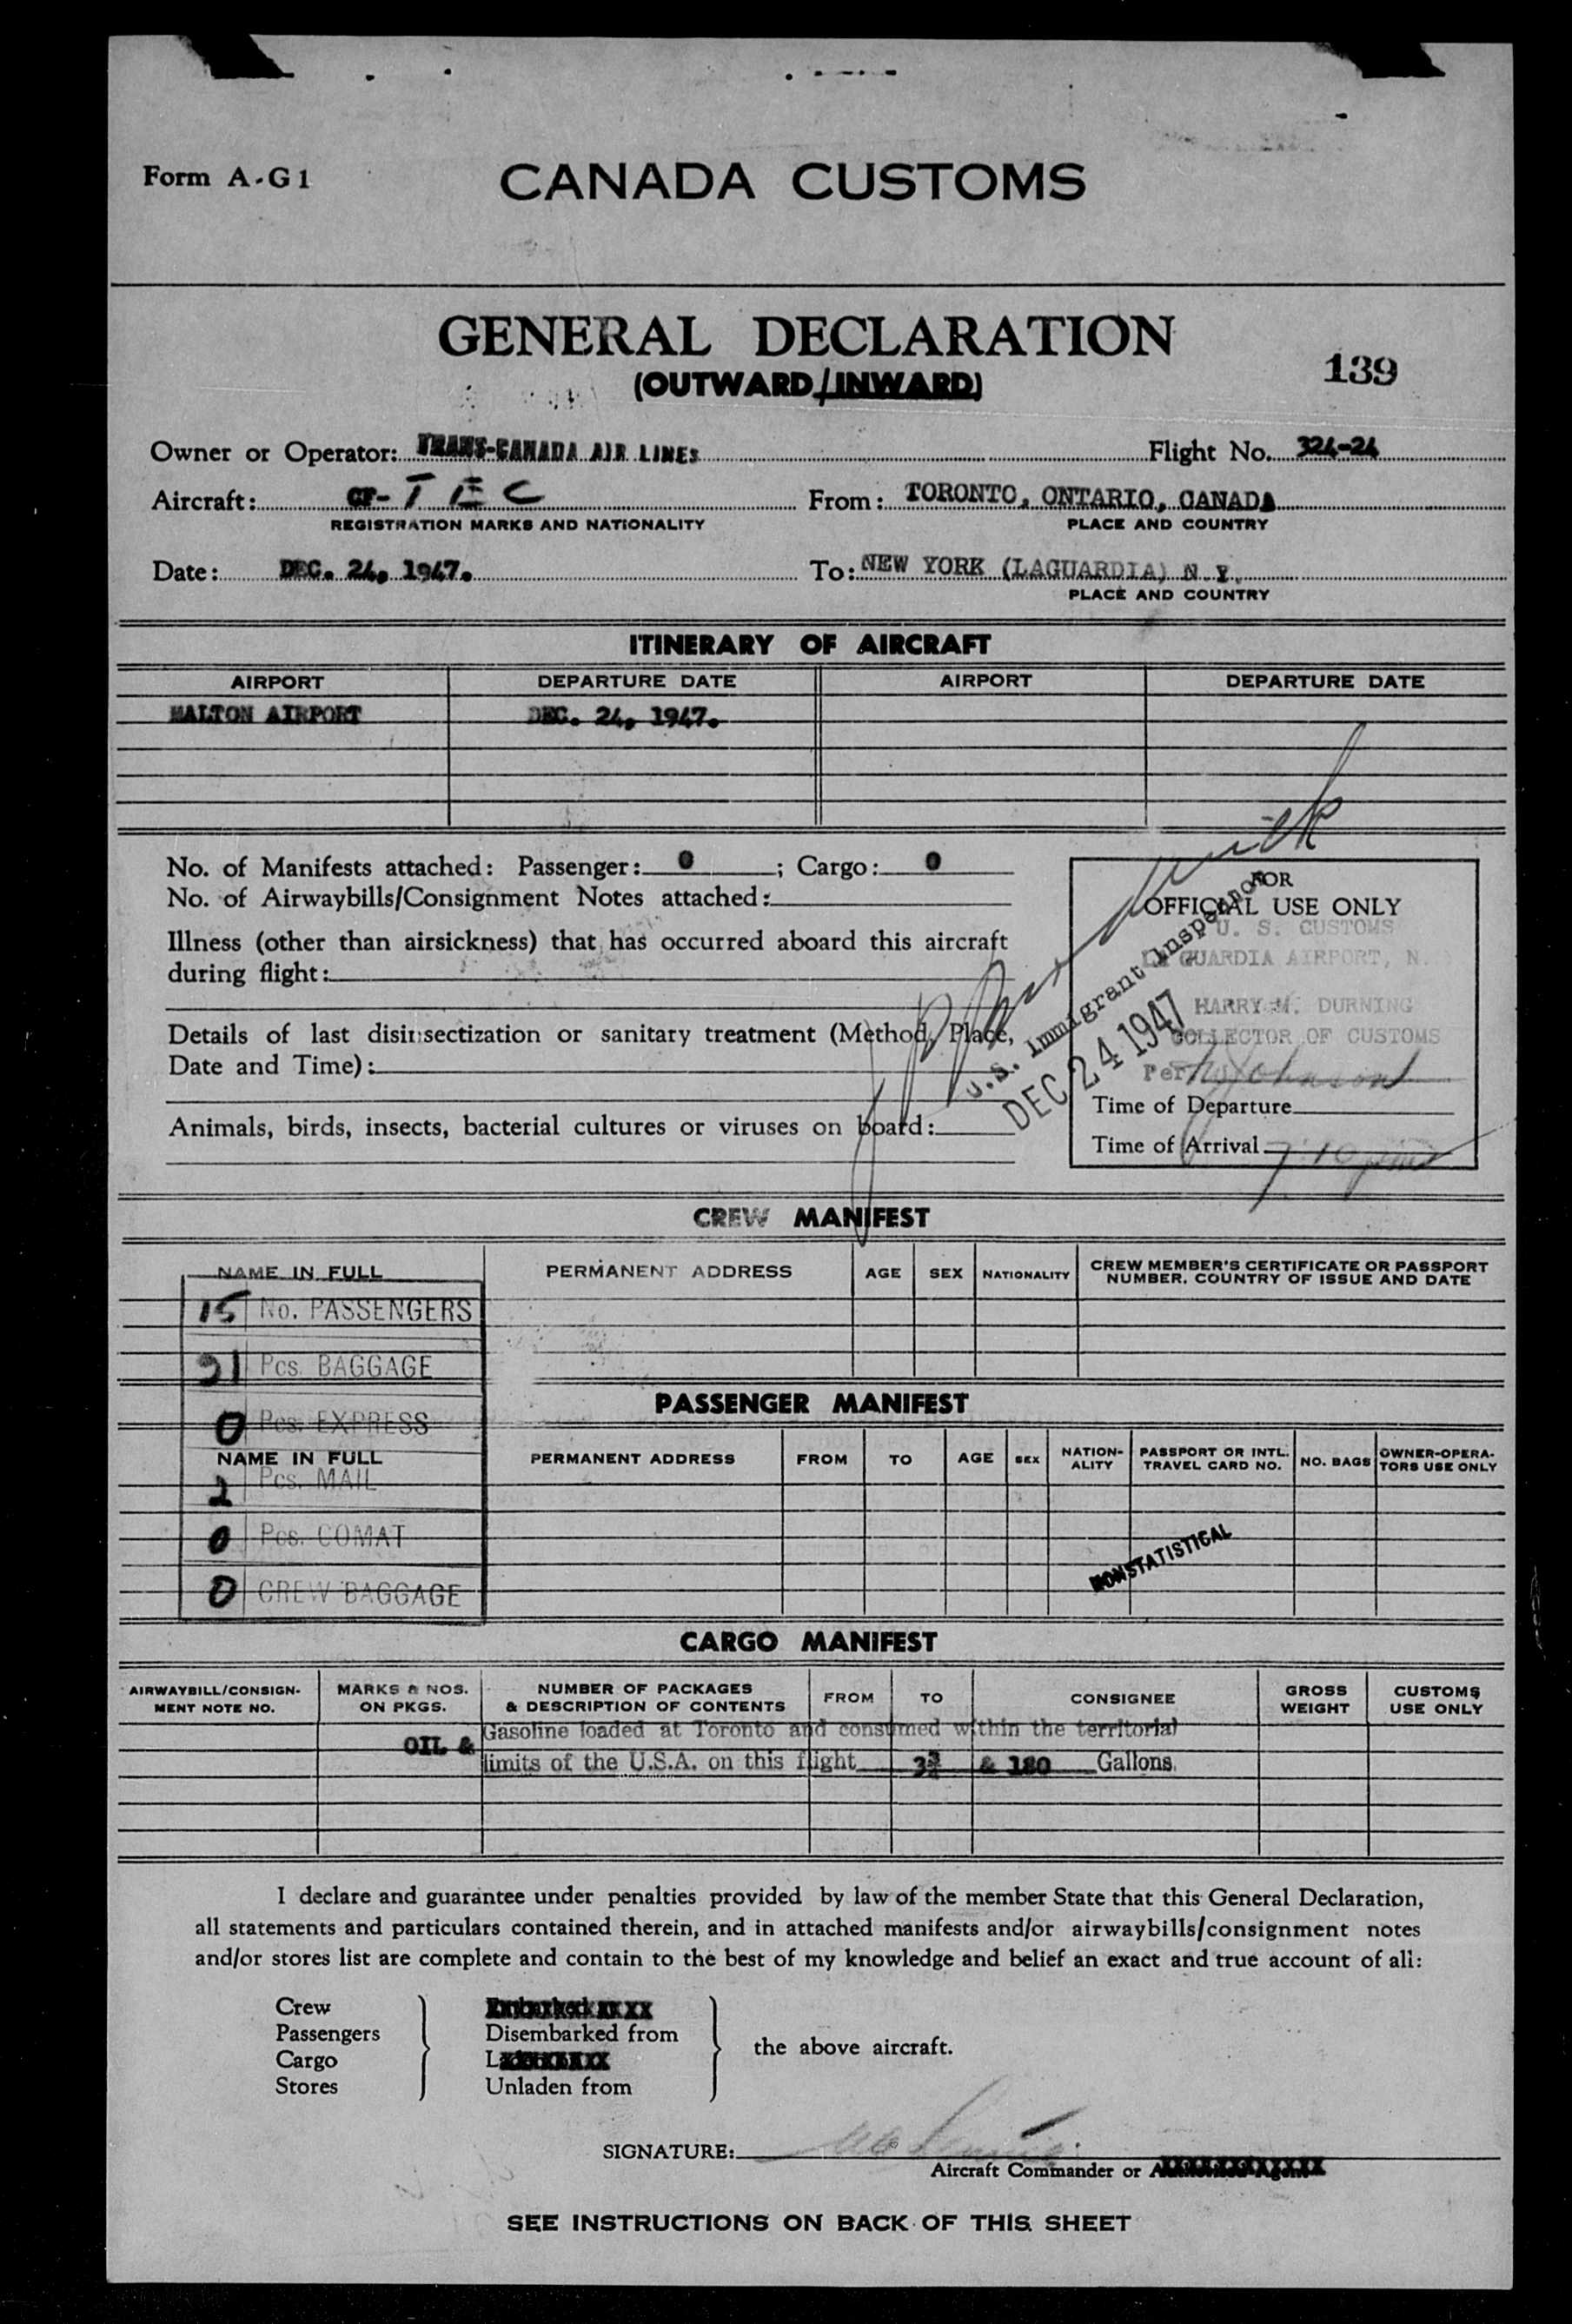 Form A-G1
CANADA CUSTOMS
GENERAL DECLARATION
(OUTWARD/INWARD)
139
Owner or Operator: TRANS-CANADA AIR LINES Flight No. 324-24
Aircraft: CF-TEC From: TORONTO, ONTARIO, CANADA
REGISTRATION MARKS AND NATIONALITY PLACE AND COUNTRY
Date: DEC. 24, 1947. To: NEW YORK (LAGUARDIA) N.Y.
PLACE AND COUNTRY
ITINERARY OF AIRCRAFT
AIRPORT DEPARTURE DATE AIRPORT DEPARTURE DATE
MALTON AIRPORT DEC. 24, 1947.
No. of Manifests attached: Passenger: 0 ; Cargo: 0
No. of Airwaybills/Consignment Notes attached:
Illness (other than airsickness) that has occurred aboard this aircraft
during flight:
Details of last disinsectization or sanitary treatment (Method, Place,
Date and Time):
Animals, birds, insects, bacterial cultures or viruses on board:
U.S. Immigrant Inspector
DEC 24 1947
FOR
OFFICIAL USE ONLY
U. S. CUSTOMS
LA GUARDIA AIRPORT, N.
HARRY M. DURNING
COLLECTOR OF CUSTOMS
Per Johnson
Time of Departure
Time of Arrival 7:10 pm
CREW MANIFEST
NAME IN FULL PERMANENT ADDRESS AGE SEX NATIONALITY CREW MEMBER'S CERTIFICATE OR PASSPORT
NUMBER. COUNTRY OF ISSUE AND DATE
15 No. PASSENGERS
21 Pcs. BAGGAGE
PASSENGER MANIFEST
0 Pcs. EXPRESS
NAME IN FULL PERMANENT ADDRESS FROM TO AGE SEX NATION-
ALITY PASSPORT OR INTL.
TRAVEL CARD NO. NO. BAGS OWNER-OPERA-
TORS USE ONLY
2 Pcs. MAIL
0 Pcs. COMAT
NONSTATISTICAL
0 CREW BAGGAGE
CARGO MANIFEST
AIRWAYBILL/CONSIGN-
MENT NOTE NO. MARKS & NOS.
ON PKGS. NUMBER OF PACKAGES
& DESCRIPTION OF CONTENTS FROM TO CONSIGNEE GROSS
WEIGHT CUSTOMS
USE ONLY
OIL & Gasoline loaded at Toronto and consumed within the territorial
limits of the U.S.A. on this flight 3¾ & 180 Gallons.
I declare and guarantee under penalties provided by law of the member State that this General Declaration,
all statements and particulars contained therein, and in attached manifests and/or airwaybills/consignment notes
and/or stores list are complete and contain to the best of my knowledge and belief an exact and true account of all:
Crew
Passengers Disembarked from
Cargo the above aircraft.
Stores Unladen from
SIGNATURE:
Aircraft Commander or
SEE INSTRUCTIONS ON BACK OF THIS SHEET